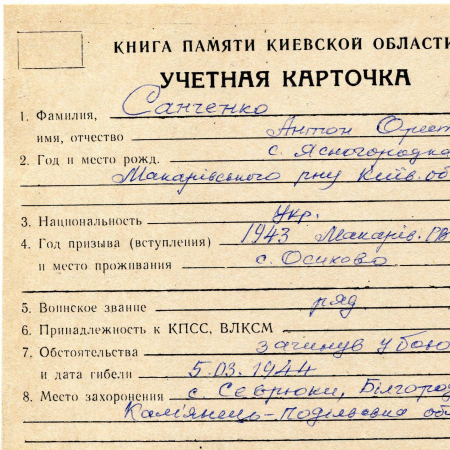 КНИГА ПАМЯТИ КИЕВСКОЙ ОБЛАСТИ
УЧЕТНАЯ КАРТОЧКА
1. Фамилия, Санченко
имя, отчество Антон Орест
2. Год и место рожд. с. Ясногородка
Макарівського р-ну Київ. об
3. Национальность Укр.
4. Год призыва (вступления) 1943 Макарів. РВ
и место проживания с. Осикова
5. Воинское звание ряд.
6. Принадлежность к КПСС, ВЛКСМ
7. Обстоятельства загинув у бою
и дата гибели 5.03.1944
8. Место захоронения с. Севрюки, Білгород
Кам'янець-Подільська об